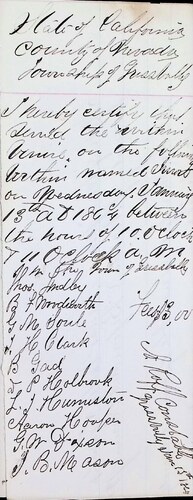 State of California
County of Nevada
Township of Grass Valley
I hereby certify that I
served the within
venire, on the following
within named Jurors
on Wednesday January
13th A.D. 1864 between
the hours of 10. O'clock
& 11 O'clock a.m
Town of Grass Valley
Thos. Findley
B. F. Wordworth
G. M. Soule
J. H. Clark
S. P. Holbrook
L. J. Humiston
Aaron Hooper
G. W. Dixson
J. B. Mason
Fees $3,00
Constable